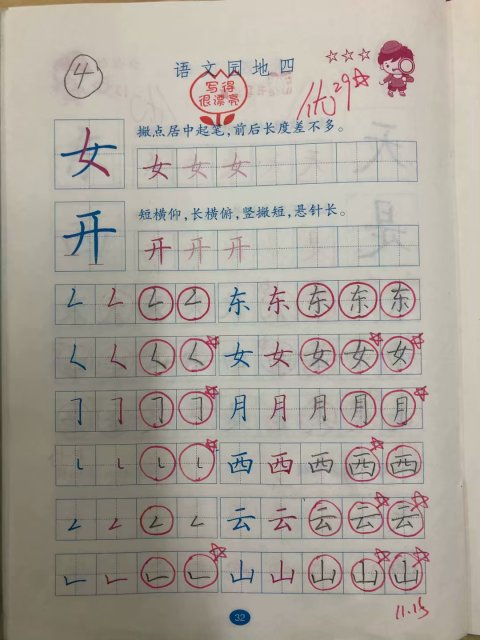 ④
语文园地四
写得
很漂亮
优 29
女 撇点居中起笔，前后长度差不多。
女 女 女
开 短横仰，长横俯，竖撇短，悬针长。
开 开 开
𠃋 𠃋 𠃋 𠃋 东 东 东 东 东
𡿨 𡿨 𡿨 𡿨 女 女 女 女 女
㇆ ㇆ ㇆ ㇆ 月 月 月 月 月
㇄ ㇄ ㇄ ㇄ 西 西 西 西 西
𠃋 𠃋 𠃋 𠃋 云 云 云 云 云
㇗ ㇗ ㇗ ㇗ 山 山 山 山 山
32
11.15